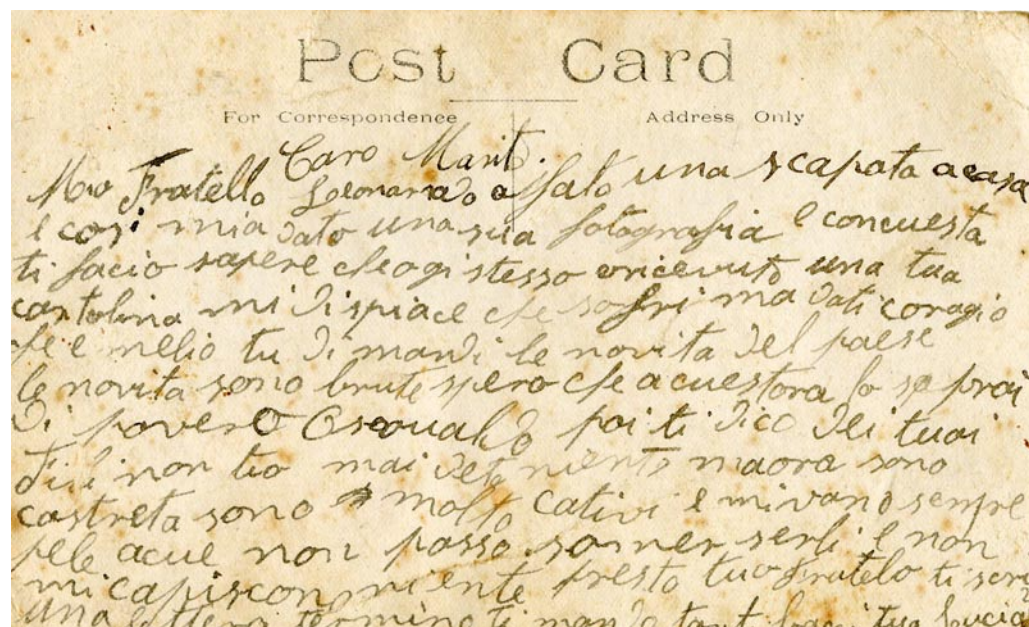 Post Card
For Correspondence
Address Only
Caro Marit.
Mio Fratello Leonardo a fato una scapata acasa
e cosi mia dato una sua fotografia e concuesta
ti facio sapere che ogi stesso oricevuto una tua
cartolina mi dispiace che sofri ma dati coragio
che e melio tu dimandi le novita del paese
le novita sono brute spero che acuestora lo saprai
di povero Osoualdo poi ti dico dei tuoi
fili non tio mai deto niento maora sono
costreta sono molto cativi e mivano sempre
pele acue non posso e non
mi capiscono niente presto tuo fratelo ti scri
una lettera termino ti mando tant baci tua Lucia